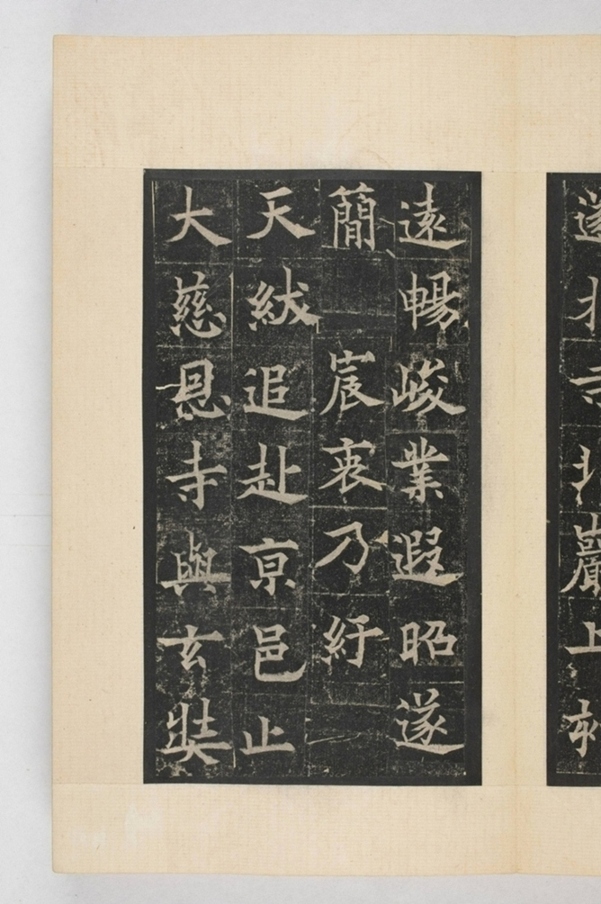 巖上
遠暢峻業遐昭遂
簡 宸衷乃紆
天紱追赴亰邑止
大慈恩寺與玄奘